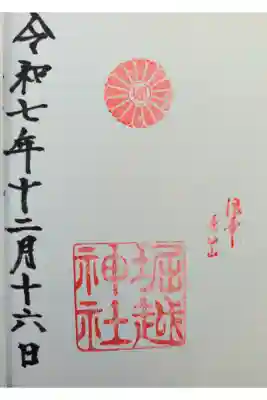 堀越
神社
令和七年十二月十六日